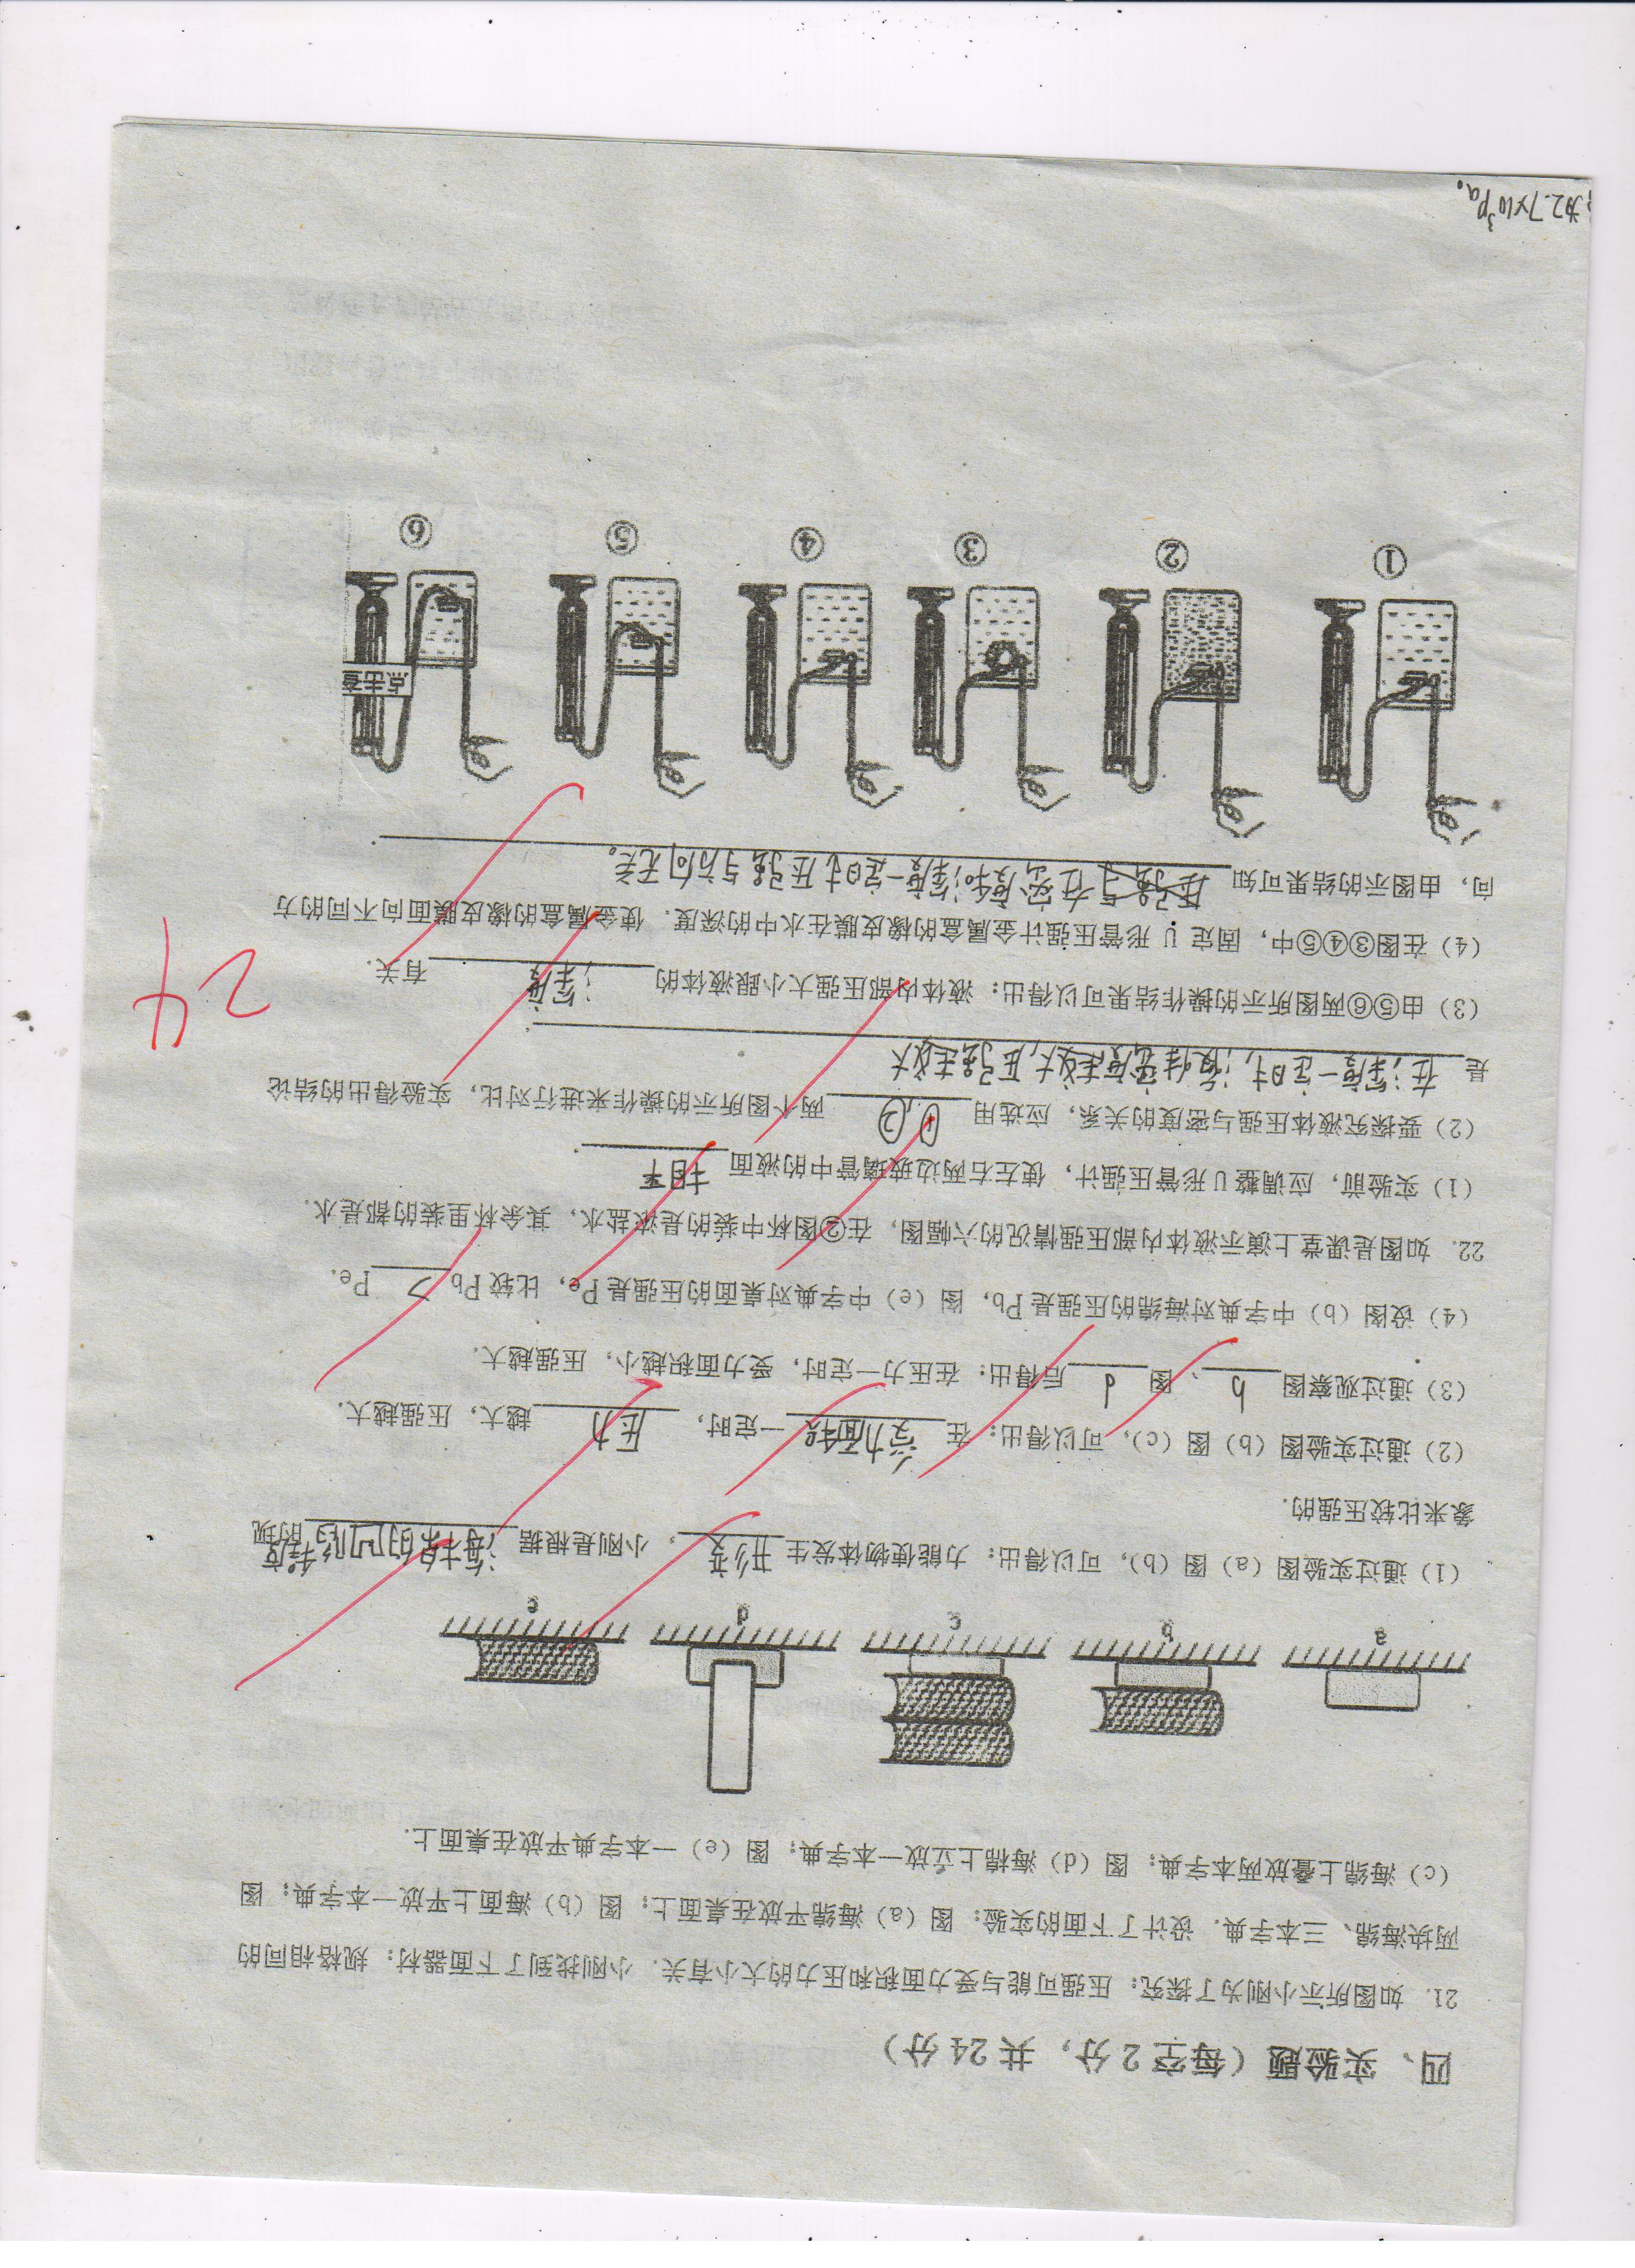 四、实验题（每空2分，共24分）
21. 如图所示小刚为了探究：压强可能与受力面积和压力的大小有关. 小刚找到了下面器材：规格相同的
两块海绵、三本字典. 设计了下面的实验：图（a）海绵平放在桌面上；图（b）海面上平放一本字典；图
（c）海绵上叠放两本字典；图（d）海棉上立放一本字典；图（e）一本字典平放在桌面上.
a b c d e
（1）通过实验图（a）图（b），可以得出：力能使物体发生 形变 ，小刚是根据 海棉的凹陷程度 的现
象来比较压强的.
（2）通过实验图（b）图（c），可以得出：在 受力面积 一定时， 压力 越大，压强越大.
（3）通过观察图 b 、图 d 后得出：在压力一定时，受力面积越小，压强越大.
（4）设图（b）中字典对海绵的压强是Pb，图（e）中字典对桌面的压强是Pe，比较Pb > Pe.
22. 如图是课堂上演示液体内部压强情况的六幅图，在②图杯中装的是浓盐水，其余杯里装的都是水.
（1）实验前，应调整U形管压强计，使左右两边玻璃管中的液面 相平 .
（2）要探究液体压强与密度的关系，应选用 ①,② 两个图所示的操作来进行对比，实验得出的结论
是 在深度一定时，液体密度越大，压强越大
（3）由⑤⑥两图所示的操作结果可以得出：液体内部压强大小跟液体的 深度 有关.
（4）在图③④⑤中，固定U形管压强计金属盒的橡皮膜在水中的深度. 使金属盒的橡皮膜面向不同的方
向，由图示的结果可知 压强与 在密度和深度一定时压强与方向无关。 .
点击查
① ② ③ ④ ⑤ ⑥
24
为2.7×10³Pa。